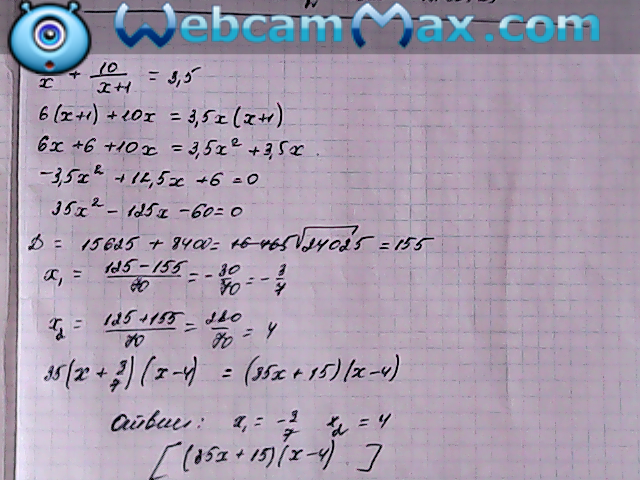 WebcamMax.com
x + 10/(x+1) = 3,5
6(x+1) + 10x = 3,5x(x+1)
6x + 6 + 10x = 3,5x² + 3,5x
-3,5x² + 12,5x + 6 = 0
35x² - 125x - 60 = 0
D = 15625 + 8400 = √24025 = 155
x₁ = (125 - 155)/70 = -30/70 = -3/7
x₂ = (125 + 155)/70 = 280/70 = 4
35(x + 3/7)(x - 4) = (35x + 15)(x - 4)
Ответ: x₁ = -3/7 x₂ = 4
[(35x + 15)(x - 4)]